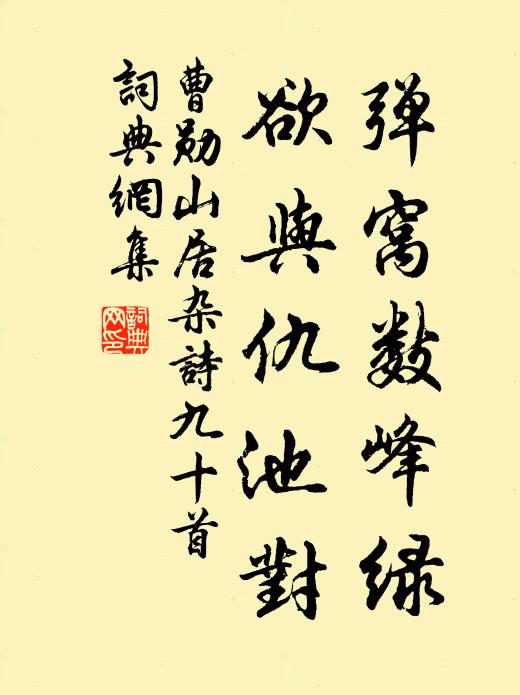 弹窝数峰绿
欲与仇池對
曹勋山居杂詩九十首
詞典網集
詞典
网印